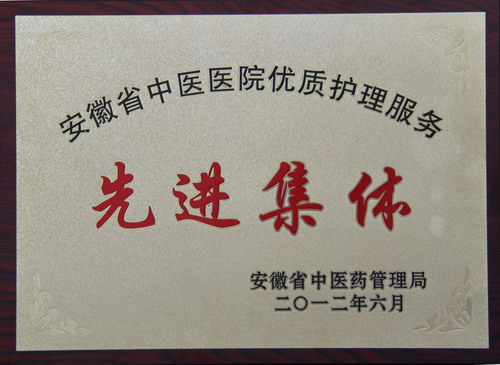 安徽省中医医院优质护理服务
先进集体
安徽省中医药管理局
二〇一二年六月